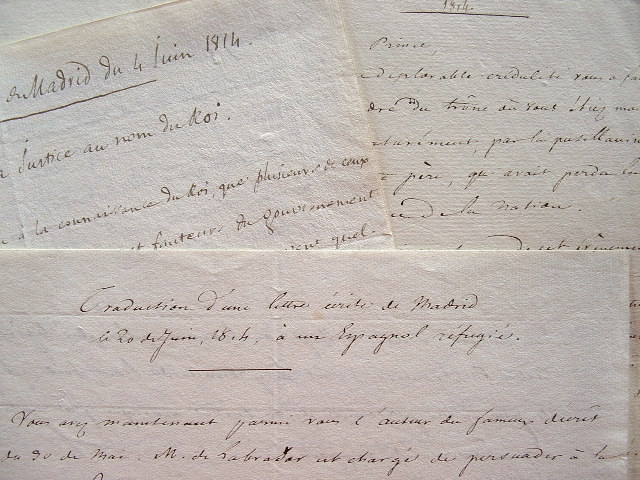 du Madrid du 4 Juin 1814.
Justice au nom du Roi.
à la connaissance du Roi, que plusieurs de ceux
et fauteurs du Gouvernement
quel-
1814.
Prince,
déplorable crédulité vous a fa
du trône où vous étiez mo
par la pusillanim
père, que avait perdu la
de la nation.
Traduction d'une lettre écrite de Madrid
le 20 de Juin, 1814, à un Espagnol réfugié.
Vous avez maintenant parmi vous l'auteur du fameux décrêt
du 30 de Mai. M. de Labrador est chargé de persuader à la